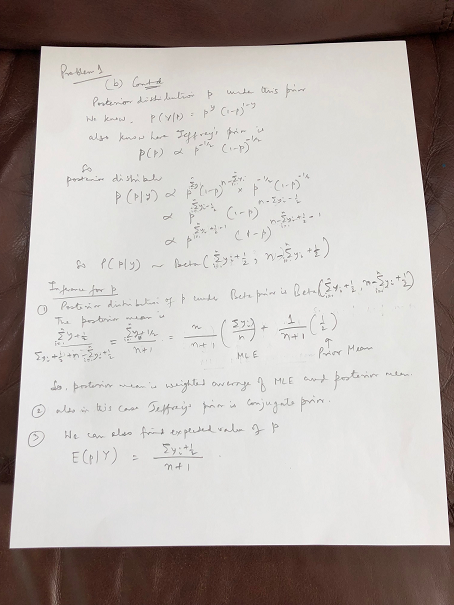 Problem 1
(b) Contd
Posterior distribution p under this prior
We know. P(Y|p) = p^y (1-p)^{1-y}
also know here Jeffrey's prior is
p(p) ∝ p^{-1/2} (1-p)^{-1/2}
So
posterior distribute
p(p|y) ∝ p^{Σ_{i=1}^{n} y_i} (1-p)^{n-Σ_{i=1}^{n} y_i} × p^{-1/2} (1-p)^{-1/2}
∝ p^{Σ_{i=1}^{n} y_i - 1/2} (1-p)^{n-Σ y_i - 1/2}
∝ p^{Σ_{i=1}^{n} y_i + 1/2 - 1} (1-p)^{n-Σ_{i=1}^{n} y_i + 1/2 - 1}
So P(p|y) ~ Beta(Σ_{i=1}^{n} y_i + 1/2 , n-Σ_{i=1}^{n} y_i + 1/2)
Inference for p
① Posterior distribution of p under Beta prior is Beta(Σ_{i=1}^{n} y_i + 1/2 , n-Σ_{i=1}^{n} y_i + 1/2)
The posterior mean is
= (Σ_{i=1}^{n} y_i + 1/2)/(n+1) = n/(n+1) (Σy_i/n) + 1/(n+1) (1/2)
MLE Prior Mean
So, posterior mean is weighted average of MLE and posterior mean.
② also in this case Jeffrey's prior is conjugate prior.
③ We can also find expected value of p
E(p|Y) = (Σy_i + 1/2)/(n+1) .